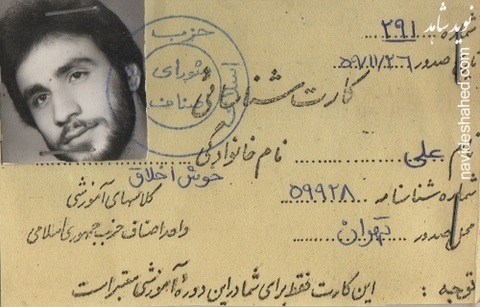 نوید شاهد
navideshahed.com
شماره ۲۹۱
صدور ۵۹/۱۱/۲۶
حزب
شورای
اصناف
کارت شناسائی
علی نام خانوادگی خوش اخلاق
شماره شناسنامه ۵۹۹۲۸
کلاسهای آموزشی
محل صدور تهران
واحد اصناف حزب جمهوری اسلامی
توجه : این کارت فقط برای شما در این دوره آموزشی معتبر است